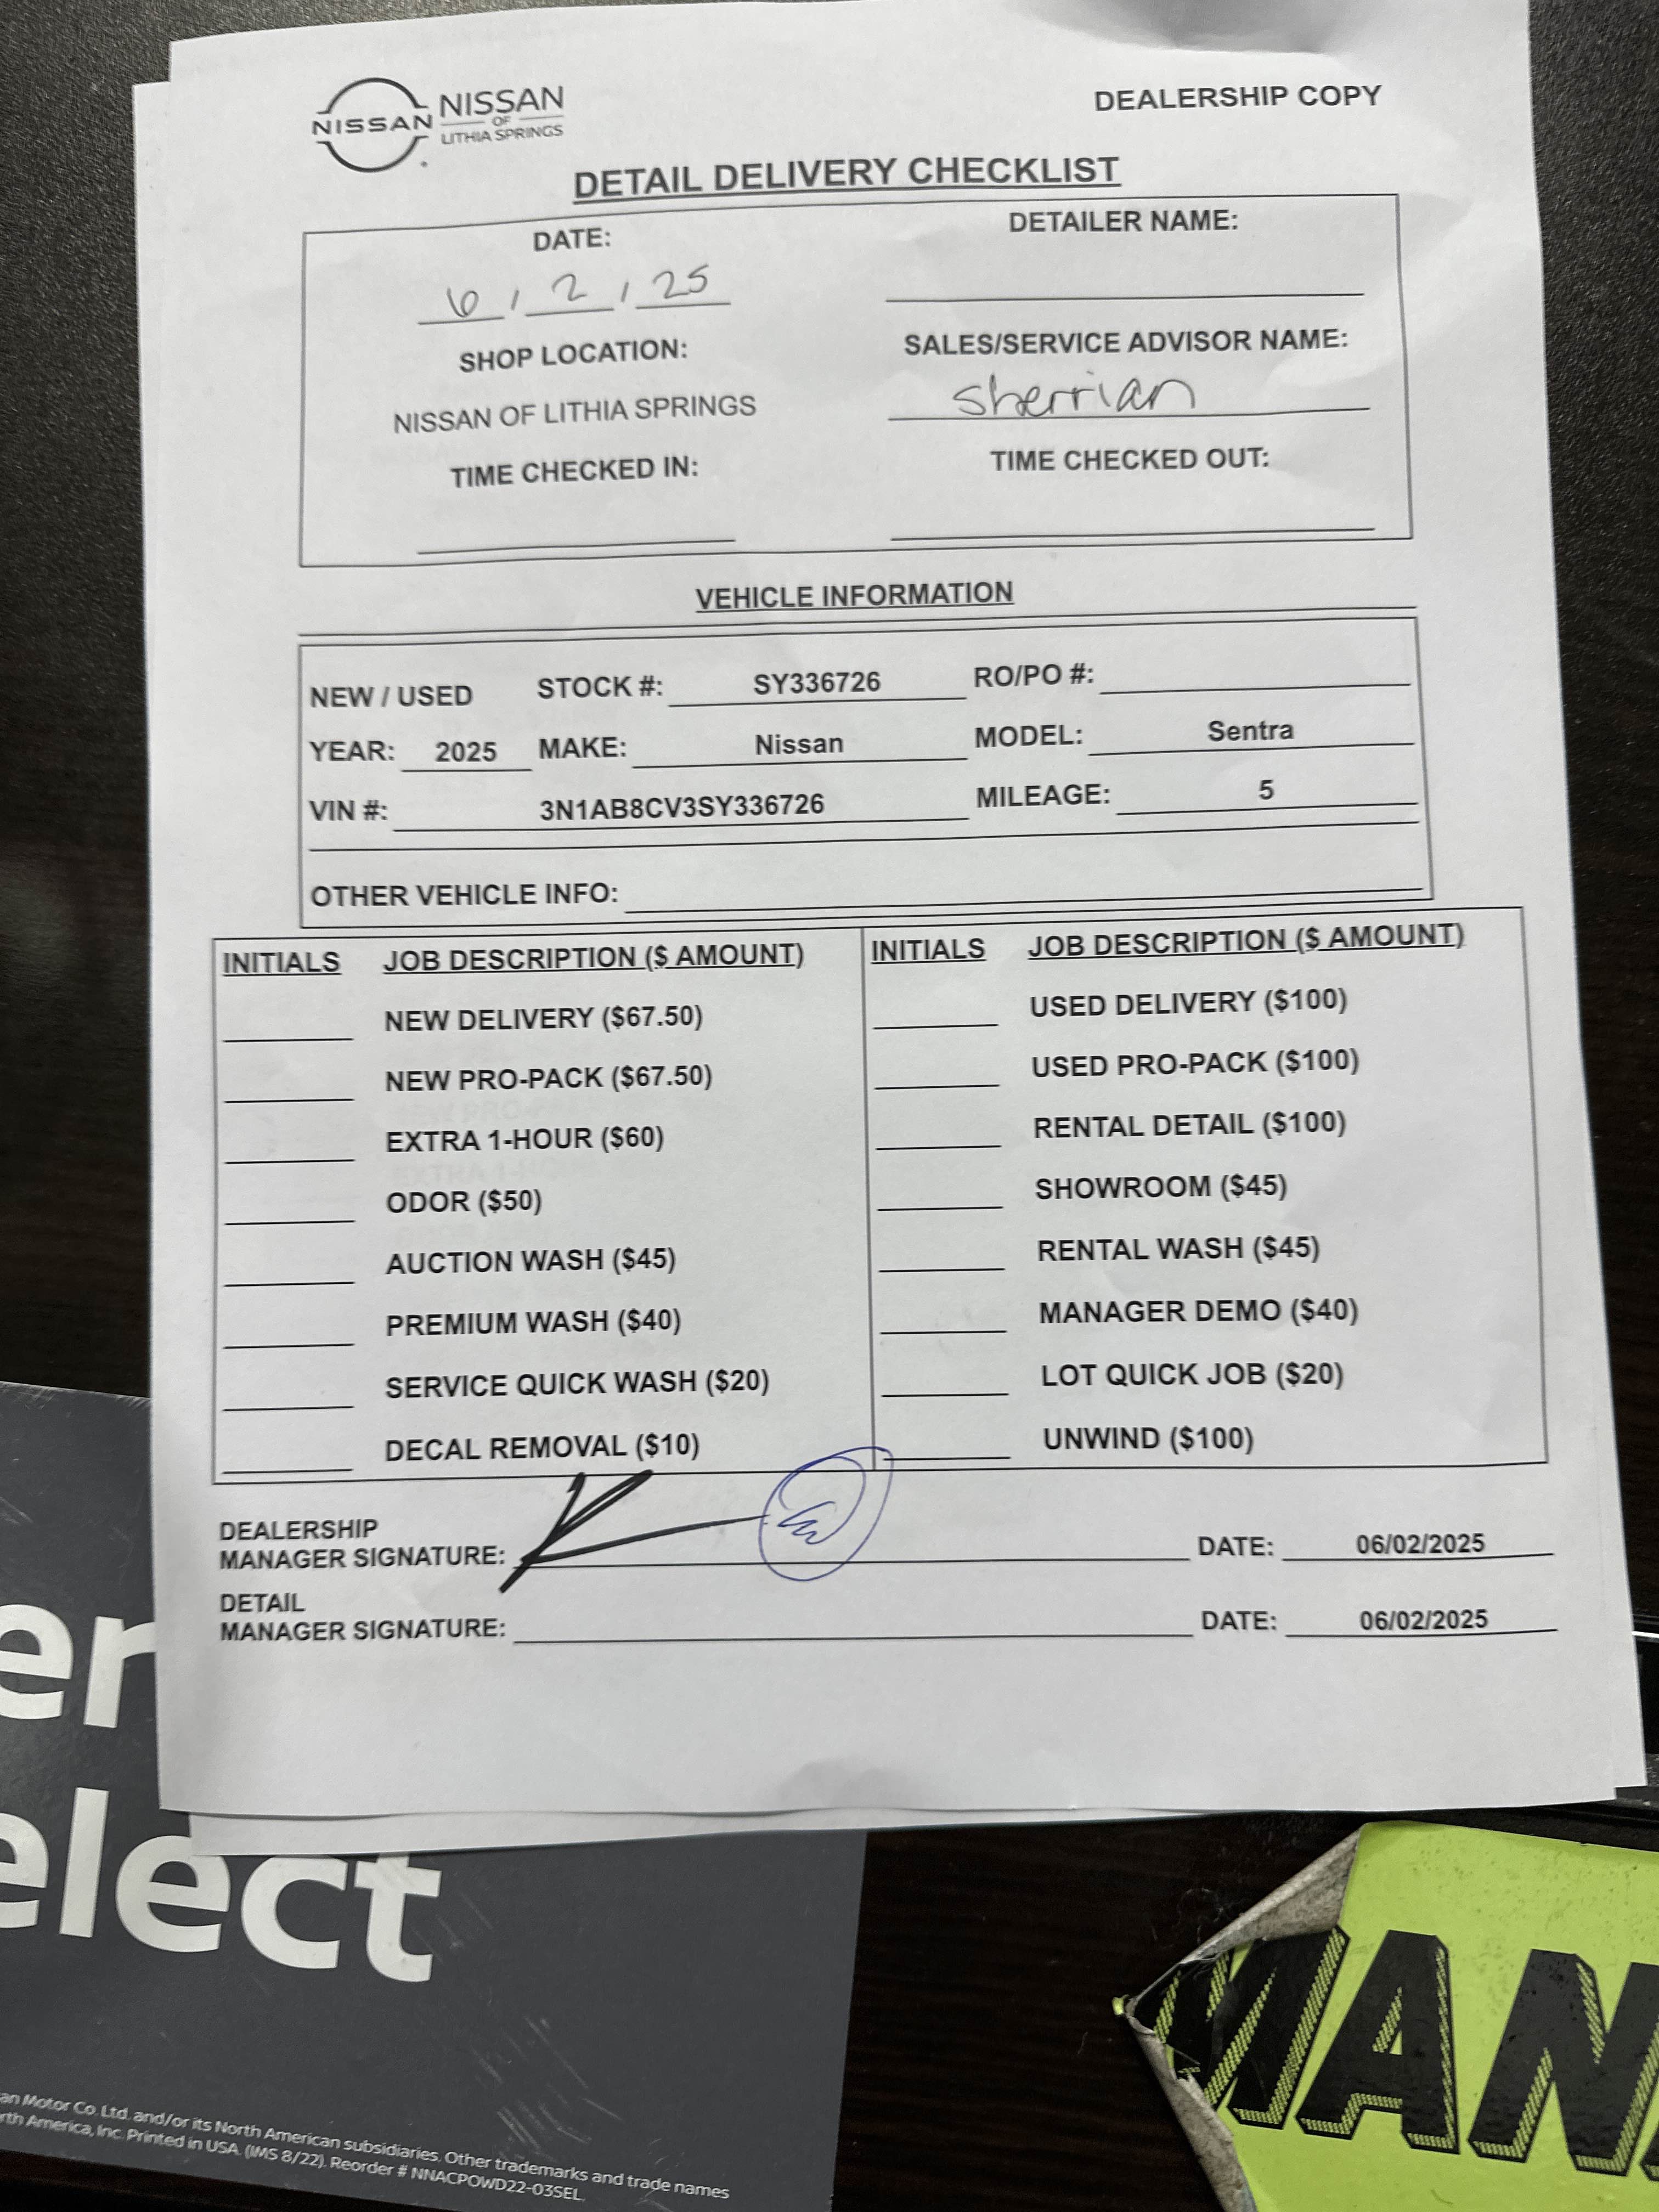 NISSAN
NISSAN
OF
LITHIA SPRINGS
DEALERSHIP COPY
DETAIL DELIVERY CHECKLIST
DATE:
6 / 2 / 25
DETAILER NAME:
SHOP LOCATION:
NISSAN OF LITHIA SPRINGS
SALES/SERVICE ADVISOR NAME:
Sherrian
TIME CHECKED IN:
TIME CHECKED OUT:
VEHICLE INFORMATION
NEW / USED STOCK #: SY336726 RO/PO #:
YEAR: 2025 MAKE: Nissan MODEL: Sentra
VIN #: 3N1AB8CV3SY336726 MILEAGE: 5
OTHER VEHICLE INFO:
INITIALS JOB DESCRIPTION ($ AMOUNT)
NEW DELIVERY ($67.50)
NEW PRO-PACK ($67.50)
EXTRA 1-HOUR ($60)
ODOR ($50)
AUCTION WASH ($45)
PREMIUM WASH ($40)
SERVICE QUICK WASH ($20)
DECAL REMOVAL ($10)
INITIALS JOB DESCRIPTION ($ AMOUNT)
USED DELIVERY ($100)
USED PRO-PACK ($100)
RENTAL DETAIL ($100)
SHOWROOM ($45)
RENTAL WASH ($45)
MANAGER DEMO ($40)
LOT QUICK JOB ($20)
UNWIND ($100)
DEALERSHIP
MANAGER SIGNATURE: DATE: 06/02/2025
DETAIL
MANAGER SIGNATURE: DATE: 06/02/2025
er
elect
an Motor Co. Ltd. and/or its North American subsidiaries. Other trademarks and trade names
rth America, Inc. Printed in USA. (IMS 8/22). Reorder # NNACPOWD22-03SEL.
MAN